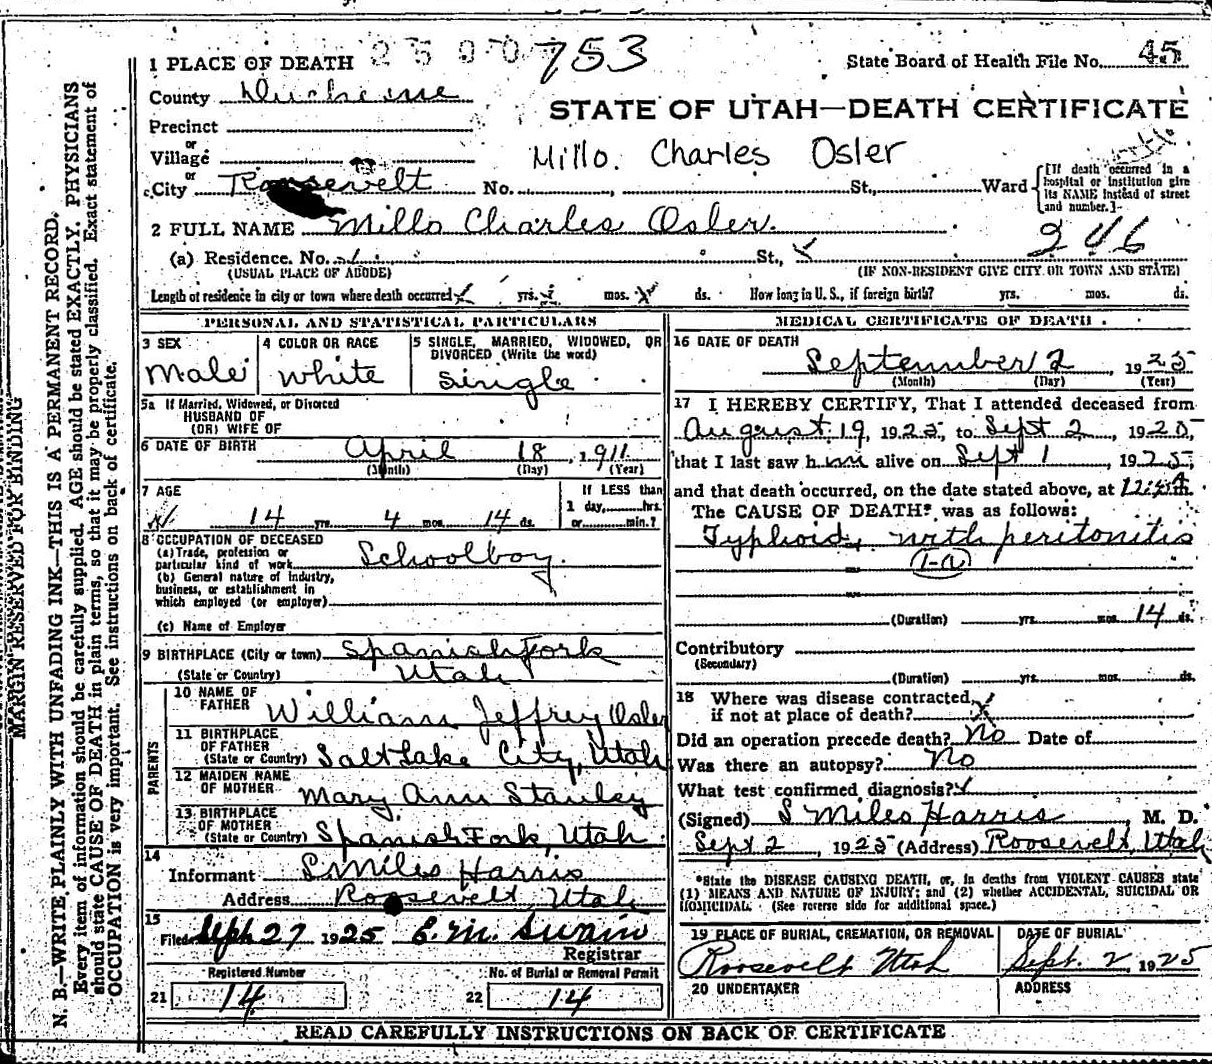 753
1 PLACE OF DEATH
State Board of Health File No. 45
County Duchesne
STATE OF UTAH—DEATH CERTIFICATE
Precinct
or
Village
Millo. Charles Osler
or
City Roosevelt No. St., Ward
[If death occurred in a hospital or institution give its NAME instead of street and number.]
2 FULL NAME Millo Charles Osler.
246
(a) Residence. No. St.,
(USUAL PLACE OF ABODE) (IF NON-RESIDENT GIVE CITY OR TOWN AND STATE)
Length of residence in city or town where death occurred yrs. mos. ds. How long in U. S., if foreign birth? yrs. mos. ds.
PERSONAL AND STATISTICAL PARTICULARS
3 SEX
Male
4 COLOR OR RACE
White
5 SINGLE, MARRIED, WIDOWED, OR
DIVORCED (Write the word)
Single
5a If Married, Widowed, or Divorced
HUSBAND OF
(OR) WIFE OF
6 DATE OF BIRTH April 18, 1911
(Month) (Day) (Year)
7 AGE
14 yrs. 4 mos. 14 ds.
If LESS than
1 day, hrs.
or min.?
8 OCCUPATION OF DECEASED
(a) Trade, profession or
particular kind of work Schoolboy
(b) General nature of industry,
business, or establishment in
which employed (or employer)
(c) Name of Employer
9 BIRTHPLACE (City or town) Spanish Fork
(State or Country) Utah
PARENTS
10 NAME OF
FATHER William Jeffrey Osler
11 BIRTHPLACE
OF FATHER
(State or Country) Salt Lake City, Utah
12 MAIDEN NAME
OF MOTHER Mary Ann Stanley
13 BIRTHPLACE
OF MOTHER
(State or Country) Spanish Fork, Utah.
14
Informant S Miles Harris
Address Roosevelt, Utah
15
Filed Sept 27 1925 E. M. Swain
Registrar
Registered Number
21 14
No. of Burial or Removal Permit
22 14
MEDICAL CERTIFICATE OF DEATH
16 DATE OF DEATH
September 2, 1925
(Month) (Day) (Year)
17 I HEREBY CERTIFY, That I attended deceased from
August 19, 1925, to Sept 2, 1925,
that I last saw him alive on Sept 1, 1925,
and that death occurred, on the date stated above, at
The CAUSE OF DEATH* was as follows:
Typhoid, with peritonitis
(1-a)
(Duration) yrs. mos. 14 ds.
Contributory
(Secondary)
(Duration) yrs. mos. ds.
18 Where was disease contracted,
if not at place of death?
Did an operation precede death? No Date of
Was there an autopsy? No
What test confirmed diagnosis?
(Signed) S Miles Harris, M. D.
Sept 2, 1925 (Address) Roosevelt, Utah
*State the DISEASE CAUSING DEATH, or, in deaths from VIOLENT CAUSES state
(1) MEANS AND NATURE OF INJURY; and (2) whether ACCIDENTAL, SUICIDAL OR
HOMICIDAL. (See reverse side for additional space.)
19 PLACE OF BURIAL, CREMATION, OR REMOVAL
Roosevelt Utah
DATE OF BURIAL
Sept. 2, 1925
20 UNDERTAKER
ADDRESS
READ CAREFULLY INSTRUCTIONS ON BACK OF CERTIFICATE
MARGIN RESERVED FOR BINDING
N. B.—WRITE PLAINLY WITH UNFADING INK—THIS IS A PERMANENT RECORD.
Every item of information should be carefully supplied. AGE should be stated EXACTLY. PHYSICIANS
should state CAUSE OF DEATH in plain terms, so that it may be properly classified. Exact statement of
OCCUPATION is very important. See instructions on back of certificate.